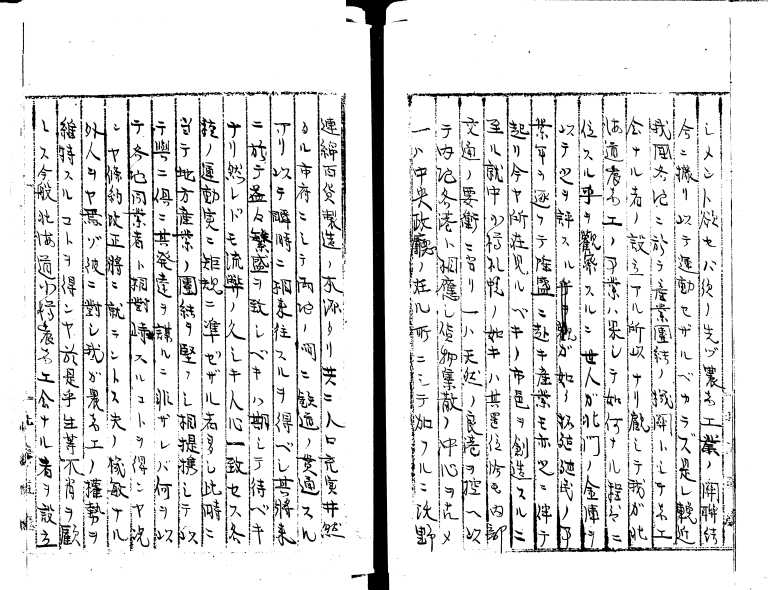 シメント欲セバ須ラク先ヅ農商工業ノ開聯結
今ニ撮リ以テ運動セザルベカラズ是レ輓近
我國各地ニ於テ産業團結ノ機関トシテ商工
会ナル者ノ設立アル所以ナリ飜シテ我ガ北
海道商工ノ事業ハ果シテ如何ナル程度ニ
位スル乎ヲ觀察スルニ世人ガ北門ノ金庫ヲ
以テ之ヲ評スル
業年ヲ逐フテ隆盛ニ赴キ産業モ亦之ニ伴テ
起リ今ヤ所在見ルベキノ市邑ヲ創造スルニ
至ル就中小樽札幌ノ如キハ其置位恰モ内部
交通ノ要衝ニ当リ一ハ天然ノ良港ヲ控ヘ以
テ内地各港ト相應シ貨物集散ノ中心ヲ占メ
一ハ中央政廳ノ在ル所ニシテ加フルニ沃野
連綿百貨製造ノ本源タリ共ニ人口充実井然
タル市府ニシテ両地ノ間ニ鉄道ノ貫通スル
アリ以テ瞬時ニ相来往スルヲ得ベシ其將来
ニ於テ益々繁盛ヲ致シベキハ期シテ待ベキ
ナリ然レドモ流弊ノ久シキ人心一致セス各
業ノ運動実ニ矩規ニ準ゼザル者多シ此時ニ
当テ地方産業ノ團結ヲ堅フシ相提携シテ以
テ興ニ倶ニ其発達ヲ謀ルニ非ザレバ何ヲ以
テ各地同業者ト相對峙スルコトヲ得ンヤ况
ンヤ條約改正將ニ就ラントス夫ノ俊敏ナル
外人ヲヤ焉ゾ彼ニ對シ我ガ農商工ノ權勢ヲ
維持スルコトヲ得ンヤ於是乎生等不肖ヲ顧
ミス今般北海道小樽商工会ナル者ヲ設立